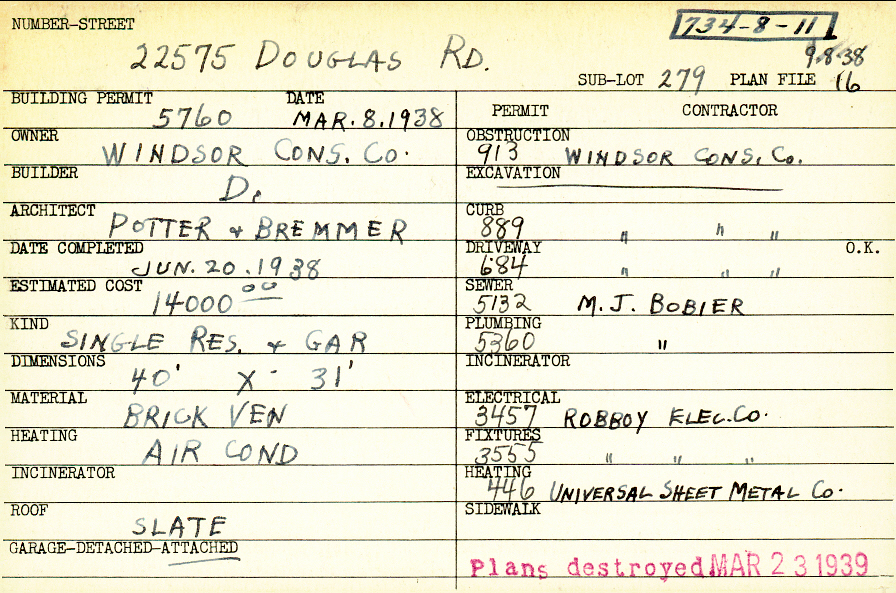 NUMBER-STREET
734-8-11
22575 DOUGLAS RD.
9.8.38
SUB-LOT 279 PLAN FILE 16
BUILDING PERMIT DATE
5760 MAR. 8. 1938
OWNER
WINDSOR CONS. CO.
BUILDER
D.
ARCHITECT
POTTER & BREMMER
DATE COMPLETED
JUN. 20. 1938
ESTIMATED COST
14000 00
KIND
SINGLE RES. & GAR
DIMENSIONS
40' X 31'
MATERIAL
BRICK VEN
HEATING
AIR COND
INCINERATOR
ROOF
SLATE
GARAGE-DETACHED-ATTACHED
PERMIT CONTRACTOR
OBSTRUCTION
913 WINDSOR CONS. CO.
EXCAVATION
CURB
889 " " "
DRIVEWAY O.K.
684 " " "
SEWER
5132 M. J. BOBIER
PLUMBING
5360 "
INCINERATOR
ELECTRICAL
3457 ROBBOY ELEC. CO.
FIXTURES
3555 " " "
HEATING
446 UNIVERSAL SHEET METAL CO.
SIDEWALK
Plans destroyed MAR 23 1939